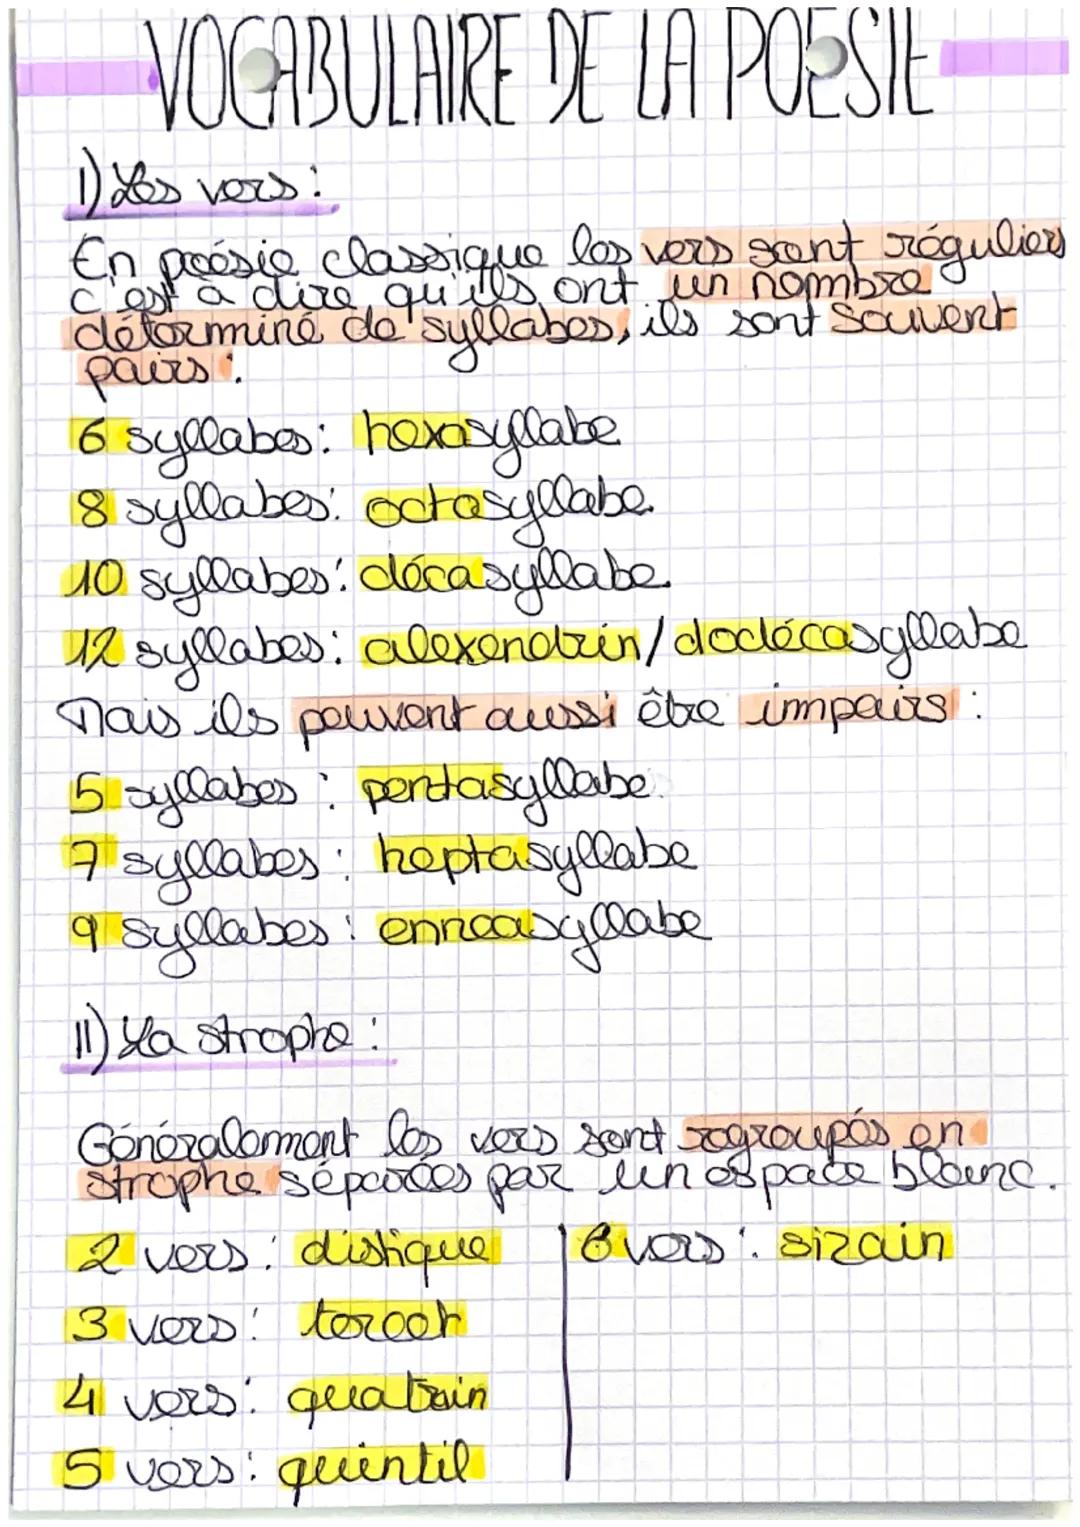 VOCABULAIRE DE LA POÉSIE
I) Les vers :
En poésie classique les vers sont réguliers
c'est à dire qu'ils ont un nombre
déterminé de syllabes, ils sont souvent
pairs :
6 syllabes : hexasyllabe
8 syllabes : octosyllabe
10 syllabes : décasyllabe
12 syllabes : alexendrin / dodécasyllabe
Mais ils peuvent aussi être impairs :
5 syllabes : pentasyllabe
7 syllabes : heptasyllabe
9 syllabes : enneasyllabe
II) La strophe :
Généralement les vers sont regroupés en
strophe séparées par un espace blanc.
2 vers : distique
3 vers : tercet
4 vers : quatrain
5 vers : quintil
6 vers : sizain